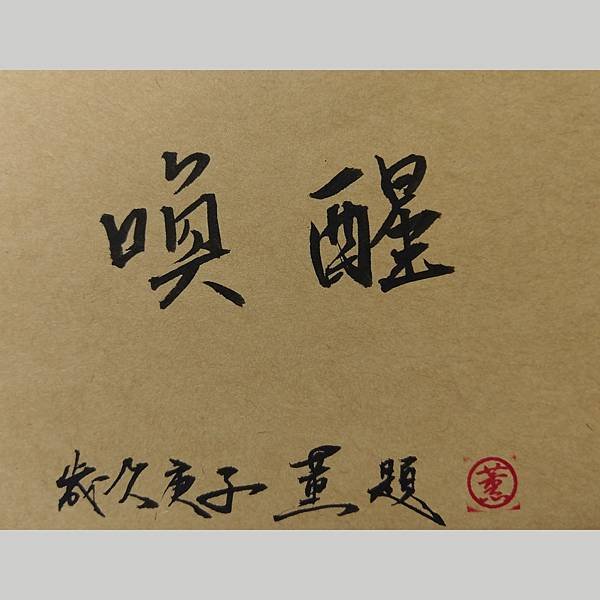 喚醒
歲次庚子薰題
薰